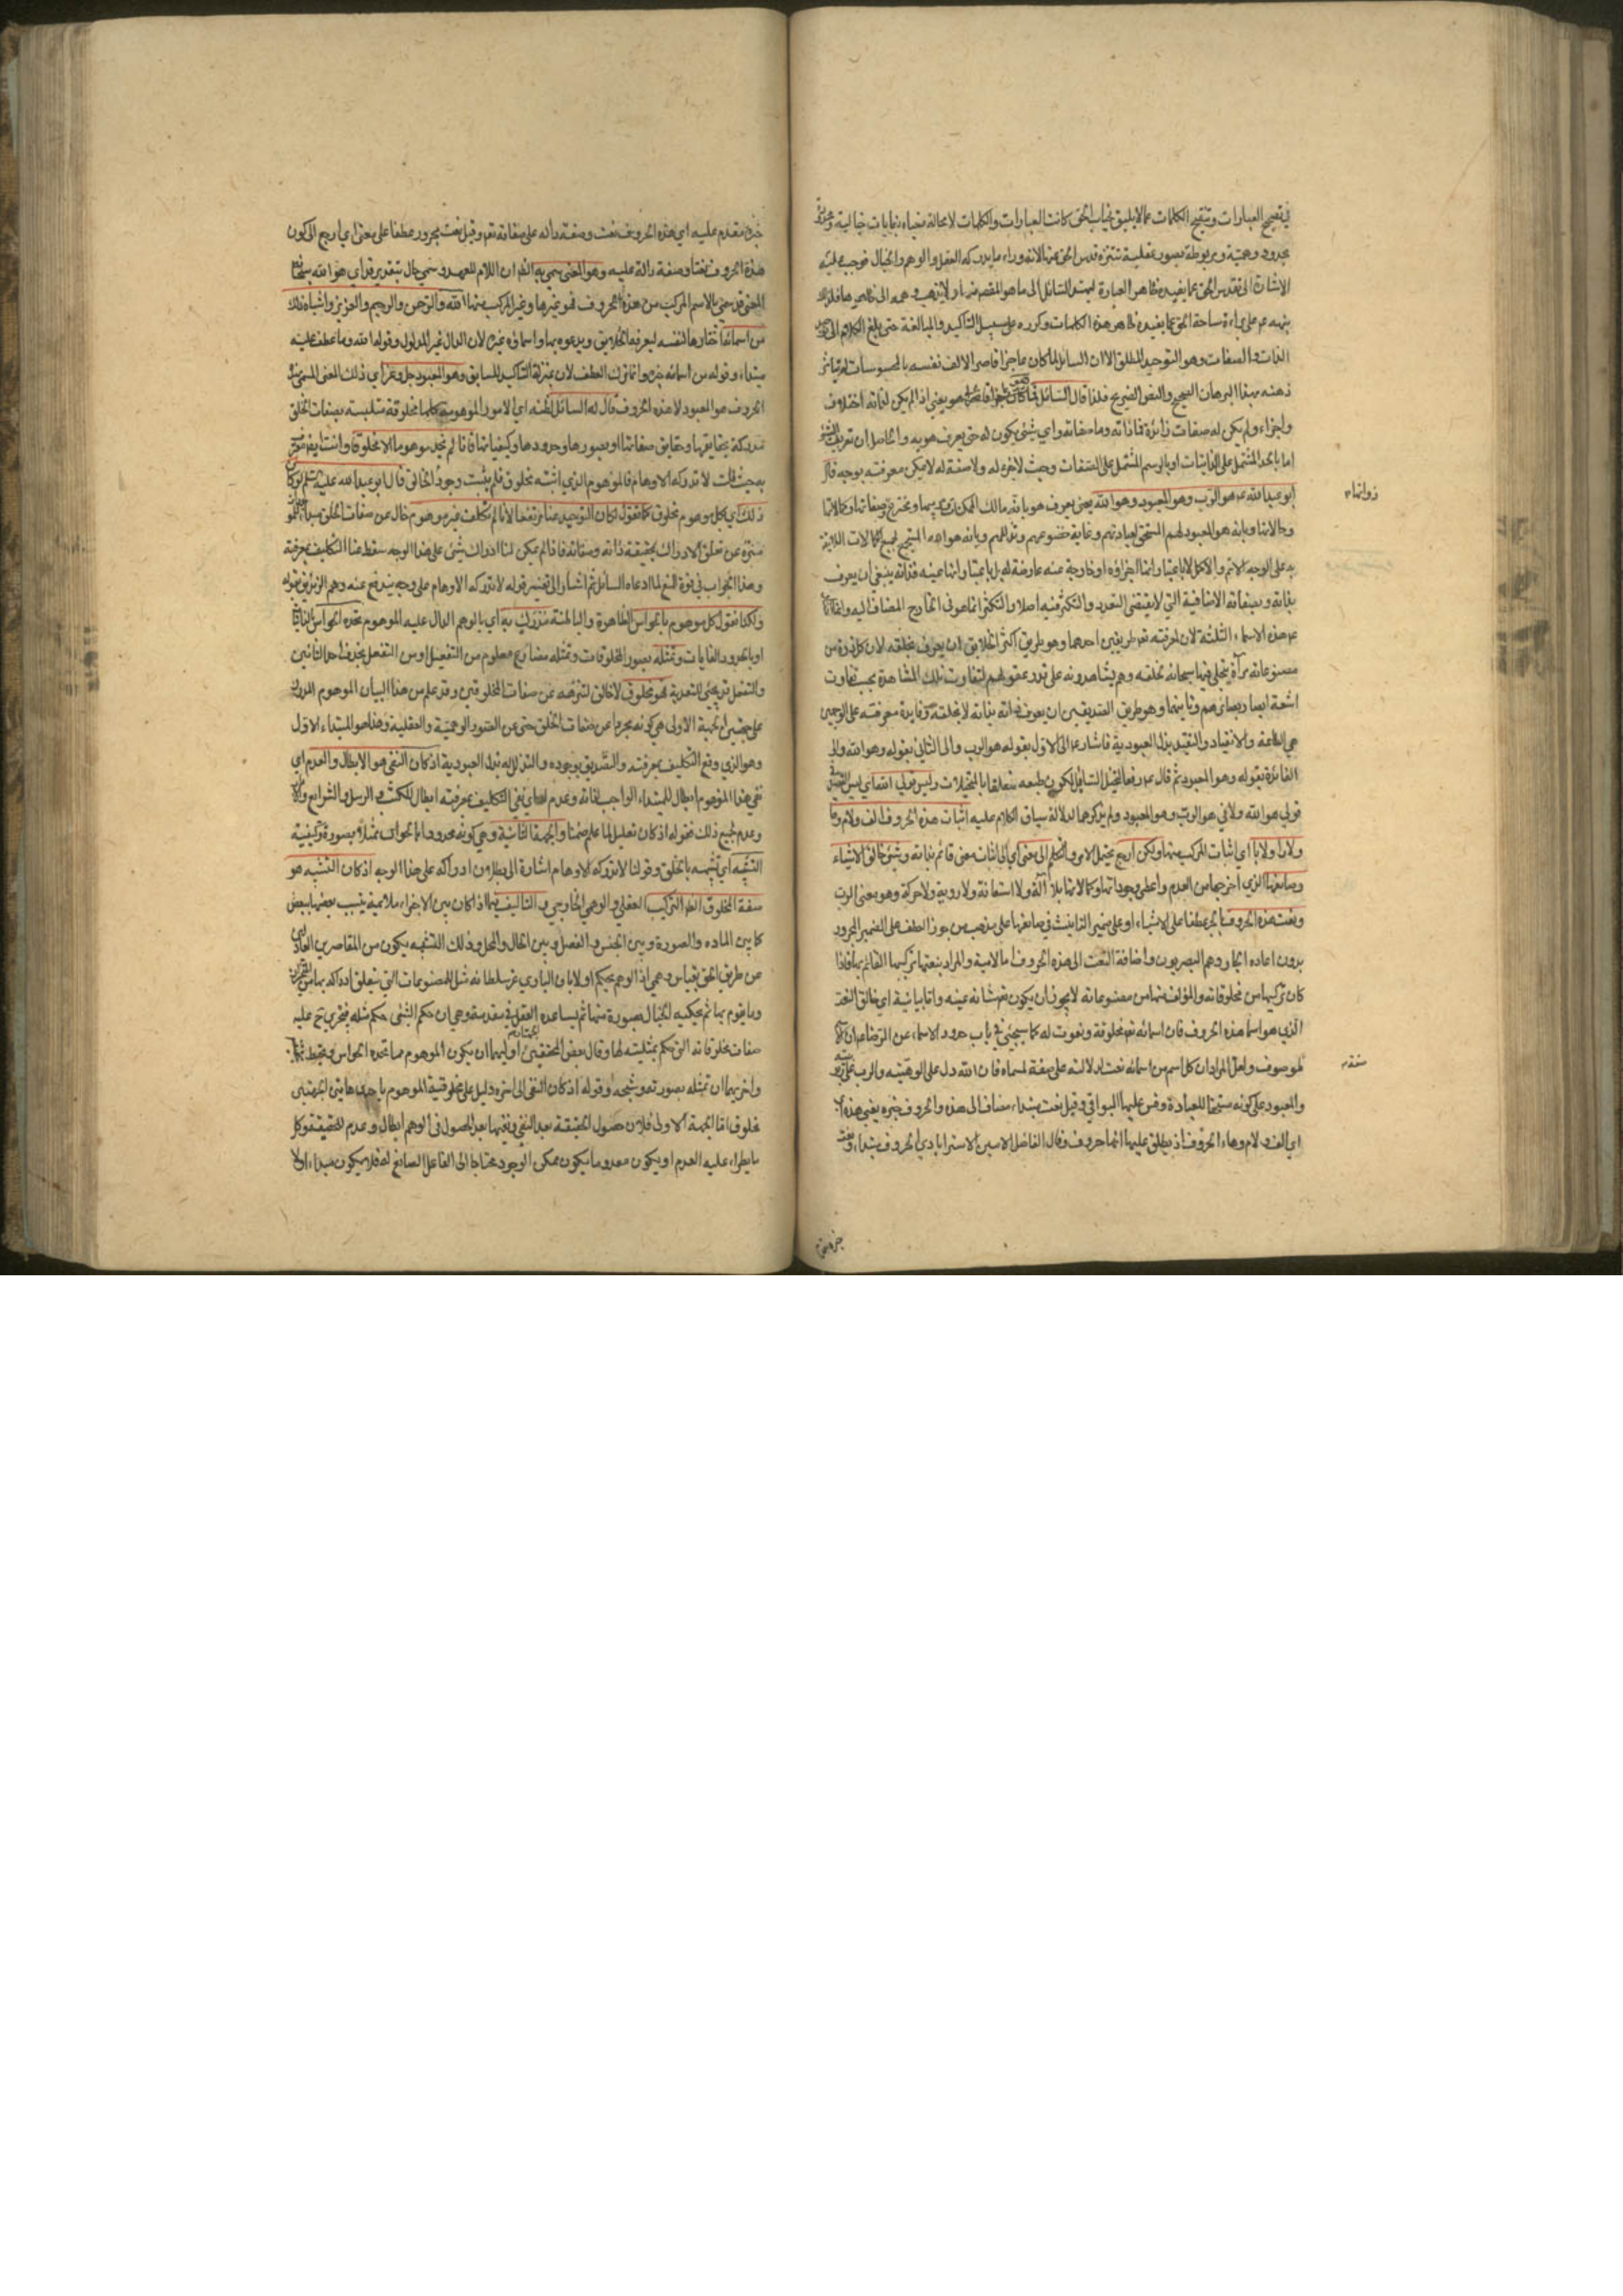 في تصحيح العبارات وتنقيح الكلمات عما لا يليق بجناب الحق كانت العبارات والكلمات لا محالة
بحدود وهمية ومربوطة بصور عقلية تنزه قدس الحق عنها لانه وراء ما يدركه العقل والوهم والخيال فوجب عليه
الاشارة الى تقدس الحق عما يفيده ظاهر العبارة السائل الى ما هو المقصد منها ولا يذهب وهمه الى ظاهرها فلذلك
نبه عم على براءة ساحة الحق عما يفيده ظاهر هذه الكلمات وكرره على سبيل التاكيد والمبالغة حتى بلغ الكلام الى
الذات والصفات وهو التوحيد المطلق الا ان السائل لما كان عاجزا قاصرا لالف نفسه بالمحسوسات لم يتاثر
ذهنه بهذا البرهان الصحيح والنص الصريح فلذا قال السائل فما هو يعني اذا لم يكن لذاته اختلاف
واجزاء ولم يكن له صفات زائدة فما ذاته وما صفاته واي شيئ يكون له حتى يعرف هو به والحاصل ان تعريف الشيء
اما بالحد المشتمل على الذاتيات او بالرسم المشتمل على الصفات وحيث لا جزء له ولا صفة له لا يمكن معرفته بوجه قال
ابو عبد الله عم هو الرب وهو المعبود وهو الله يعني يعرف هو بانه مالك الممكنات
وحالاتها وبانه هو المعبود لهم المستحق لعبادتهم وغاية خضوعهم وتذللهم وبانه هو الله المستجمع لجميع الكمالات اللائقة
به على الوجه الاتم والاكمل لا باعتبار انها اجزاؤه او خارجة عنه عارضة له بل باعتبار انها عينه فذاته ينبغي ان يعرف
بذاته وبصفاته الاضافية التي لا يقتضي التعدد والتكثر فيه اصلا والتكثر انما هو في الخارج المضاف اليه وانما
عم هذه الاسماء الثلثة لان لمعرفته تعم طريقين احدهما وهو طريق اكثر الخلايق ان يعرف بخلقه لان كل ذرة من
مصنوعاته مرآة يتجلى فيها سبحانه لخلقه وهم يشاهدونه على قدر عقولهم لتفاوت تلك المشاهدة بحسب تفاوت
اشعة ابصار بصائرهم وثانيهما وهو طريق الصديقين ان يعرف ذاته بذاته لا بخلقه وفايدة معرفته على الوجهين
هي الطاعة والانقياد والتقيد بذل العبودية فاشار عم الى الاول بقوله هو الرب والى الثاني بقوله وهو الله والى
الفائدة بقوله وهو المعبود ثم قال عم رفعا لتخيل السائل لكون طبعه متعلقا بالمتخيلات وليس قولي الله اي ليس
قولي هو الله ولا في هو الرب وهو المعبود ولم يذكرها لدلالة سياق الكلام عليه اثبات هذه الحروف الف ولام وها
ولا را ولا با اي اثبات المركب منها ولكن ارجع يحتمل الامر والتكلم الى معنى اي الى اثبات معنى قائم بذاته وشيئ خالق الاشياء
وصانعها الذي اخرجها من العدم واعطى وجوداتها وكمالاتها بلا آلة ولا استعانة ولا روية ولا حركة وهو معنى الرب
ونعت هذه الحروف بالجر عطفا على الاشياء او على ضمير التانيث في صانعها على مذهب من جوز العطف على الضمير المجرور
بدون اعادة الجار وهم البصريون واضافة النعت الى هذه الحروف اما لامية والمراد بنعتها تركبها القائم بها فاذا
كان تركبها من مخلوقاته والمؤلف منها من مصنوعاته لا يجوز ان يكون تعم شانه عينه واما بيانية اي خالق النعت
الذي هو اسما هذه الحروف فان اسمائه تعم مخلوقة ونعوت له كما سيجيئ في باب حدود الاسماء عن الرضا عم ان الاسم
لموصوف ولعل المراد ان كل اسم من اسمائه نعت لدلالته على صفة لمسماه فان الله دل على الوهيته والرب على
والمعبود على كونه مستحقا للعبادة وقس عليها البواقي وقيل نعت مبتداء مضاف الى هذه والحروف خبره يعني هذه
اي الف ولام وهاء الحروف اذ يطلق عليها انها حروف وقال الفاضل الامين الاسترابادي الحروف مبتداء ونعت
صفة
خبره مقدم عليه اي هذه الحروف نعت وصفة دالة على صفاته تعم وقيل نعت مجرور عطفا على معنى اي ارجع الى كون
هذه الحروف نعتا وصفة دالة عليه وهو المعنى سمي به الظم ان اللام للعهد وسمي حال بتقدير قد اي هو الله سبحانه
المعنى قد سمي بالاسم المركب من هذه الحروف فهو غيرها وغير المركب منها الله والرحمن والرحيم والعزيز واشباه ذلك
من اسمائه اختارها لنفسه ليعرفه الخلايق ويدعوه بها واسماؤه غيره لان الدال غير المدلول وقوله الله وما عطف عليه
مبتداء وقوله من اسمائه خبره وانما ترك العطف لانه بمنزلة التاكيد للسابق وهو المعبود جل وعز اي ذلك المعنى المسمى بهذه
الحروف هو المعبود لا هذه الحروف قال له السائل فانا لم نجد موهوما الا مخلوقا
به حيث قلت لا تدركه الاوهام فالموهوم الذي اثبته مخلوق فلم يثبت وجود الخالق قال ابو عبد الله عليه السلم لو كان
ذلك اي كل موهوم مخلوق كما تقول لكان التوحيد عنا مرتفعا لانا لم نكلف غير موهوم خال عن صفات الخلق
منزه عن تعلق الادراك بحقيقة ذاته وصفاته فاذا لم يمكن لنا ادراك شيئ على هذا الوجه سقط عنا التكليف بمعرفته
وهذا الجواب في قوة المنع لما ادعاه السائل ثم اشار الى تفسير قوله لا تدركه الاوهام على وجه يندفع عنه وهم الزنديق بقوله
ولكنا نقول كل موهوم بالحواس الظاهرة والباطنة مدرك به اي بالوهم الدال عليه الموهوم تحده الحواس
او بالحدود والغايات وتمثله بصور المخلوقات وتمثله مضارع معلوم من التفعيل او من التفعل بحذف احدى التائين
والتفعل قد يجيئ للتعدية فهو مخلوق لا خالق لتنزهه عن صفات المخلوقين وقد علم من هذا البيان ان الموهوم المدرك
على جهتين الجهة الاولى هي كونه مجردا عن صفات الخلق حتى عن الصور الوهمية والعقلية وهذا هو المبتداء الاول
وهو الذي وقع التكليف بمعرفته والتصديق بوجوده والتذلل له بذل العبودية اذ كان النفي هو الابطال والعدم اي
نفي هذا الموهوم ابطال للمبتداء الواجب لذاته وعدم له اي نفي التكليف بمعرفته ابطال للكتب والرسل والشرايع
وعدم لجميع ذلك فقوله اذ كان تعليل لما علم ضمنا والجهة الثانية وهي كونه محدودا بالحواس متمثلا بصورة وكيفية
التشبه اي تشبهه بالخلق وقولنا لا تدركه الاوهام اشارة الى بطلان ادراكه على هذا الوجه اذ كان التشبيه هو
صفة المخلوق الظم التركيب العقلي والوهمي والخارجي والتاليف فيما اذا كان بين الاجزاء ملائمة بنسب بعضها ببعض
كما بين المادة والصورة وبين الجنس والفصل وبين الحال والمحل وذلك التشبيه يكون من القاصرين
عن طريق الحق بقياس وهمي اذ الوهم يحكم اولا بان الباري عز سلطانه مثل المصنوعات التي يتعلق ادراكه بها من
وما يقوم بها ثم يحكيه الخيال بصورة منها ثم يساعده العقل في مقدمة وهي ان حكم الشيئ حكم مثله فيجري ح عليه
صفات مخلوقاته التي حكم بمثليته لها وقال بعض المحققين اوليهما ان يكون الموهوم مما تحده الحواس
واخريهما ان تمثله بصورته وشبحه وقوله اذ كان النفي الى اخره دليل على مخلوقية الموهوم باحدى هاتين الجهتين
مخلوق اما الجهة الاولى فلان حصول الحقيقة بعد النفي ونفيها بعد الحصول في الوهم ابطال وعدم للحقيقة وكل
ما يطراء عليه العدم او يكون معدوما يكون ممكن الوجود محتاجا الى الفاعل الصانع له فلا يكون مبداء اولا